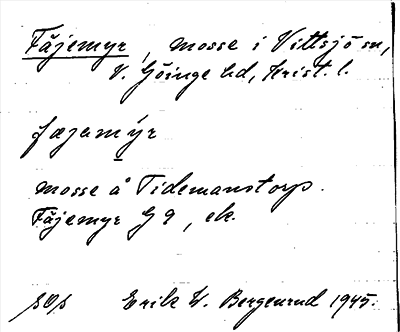 Fäjemyr, mosse i Vittsjö sn,
V. Göinge hd, Krist. l.
fæjemýr
mosse å Tidemanstorp.
Fäjemyr G 9, ek.
Erik W. Bergenrud 1945.